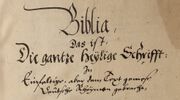 Biblia,
Das ist,
Die gantze Heylige Schrifft:
In
Einfaltige, aber dem Text gemesse
Deutsche Rhÿmen gebracht.